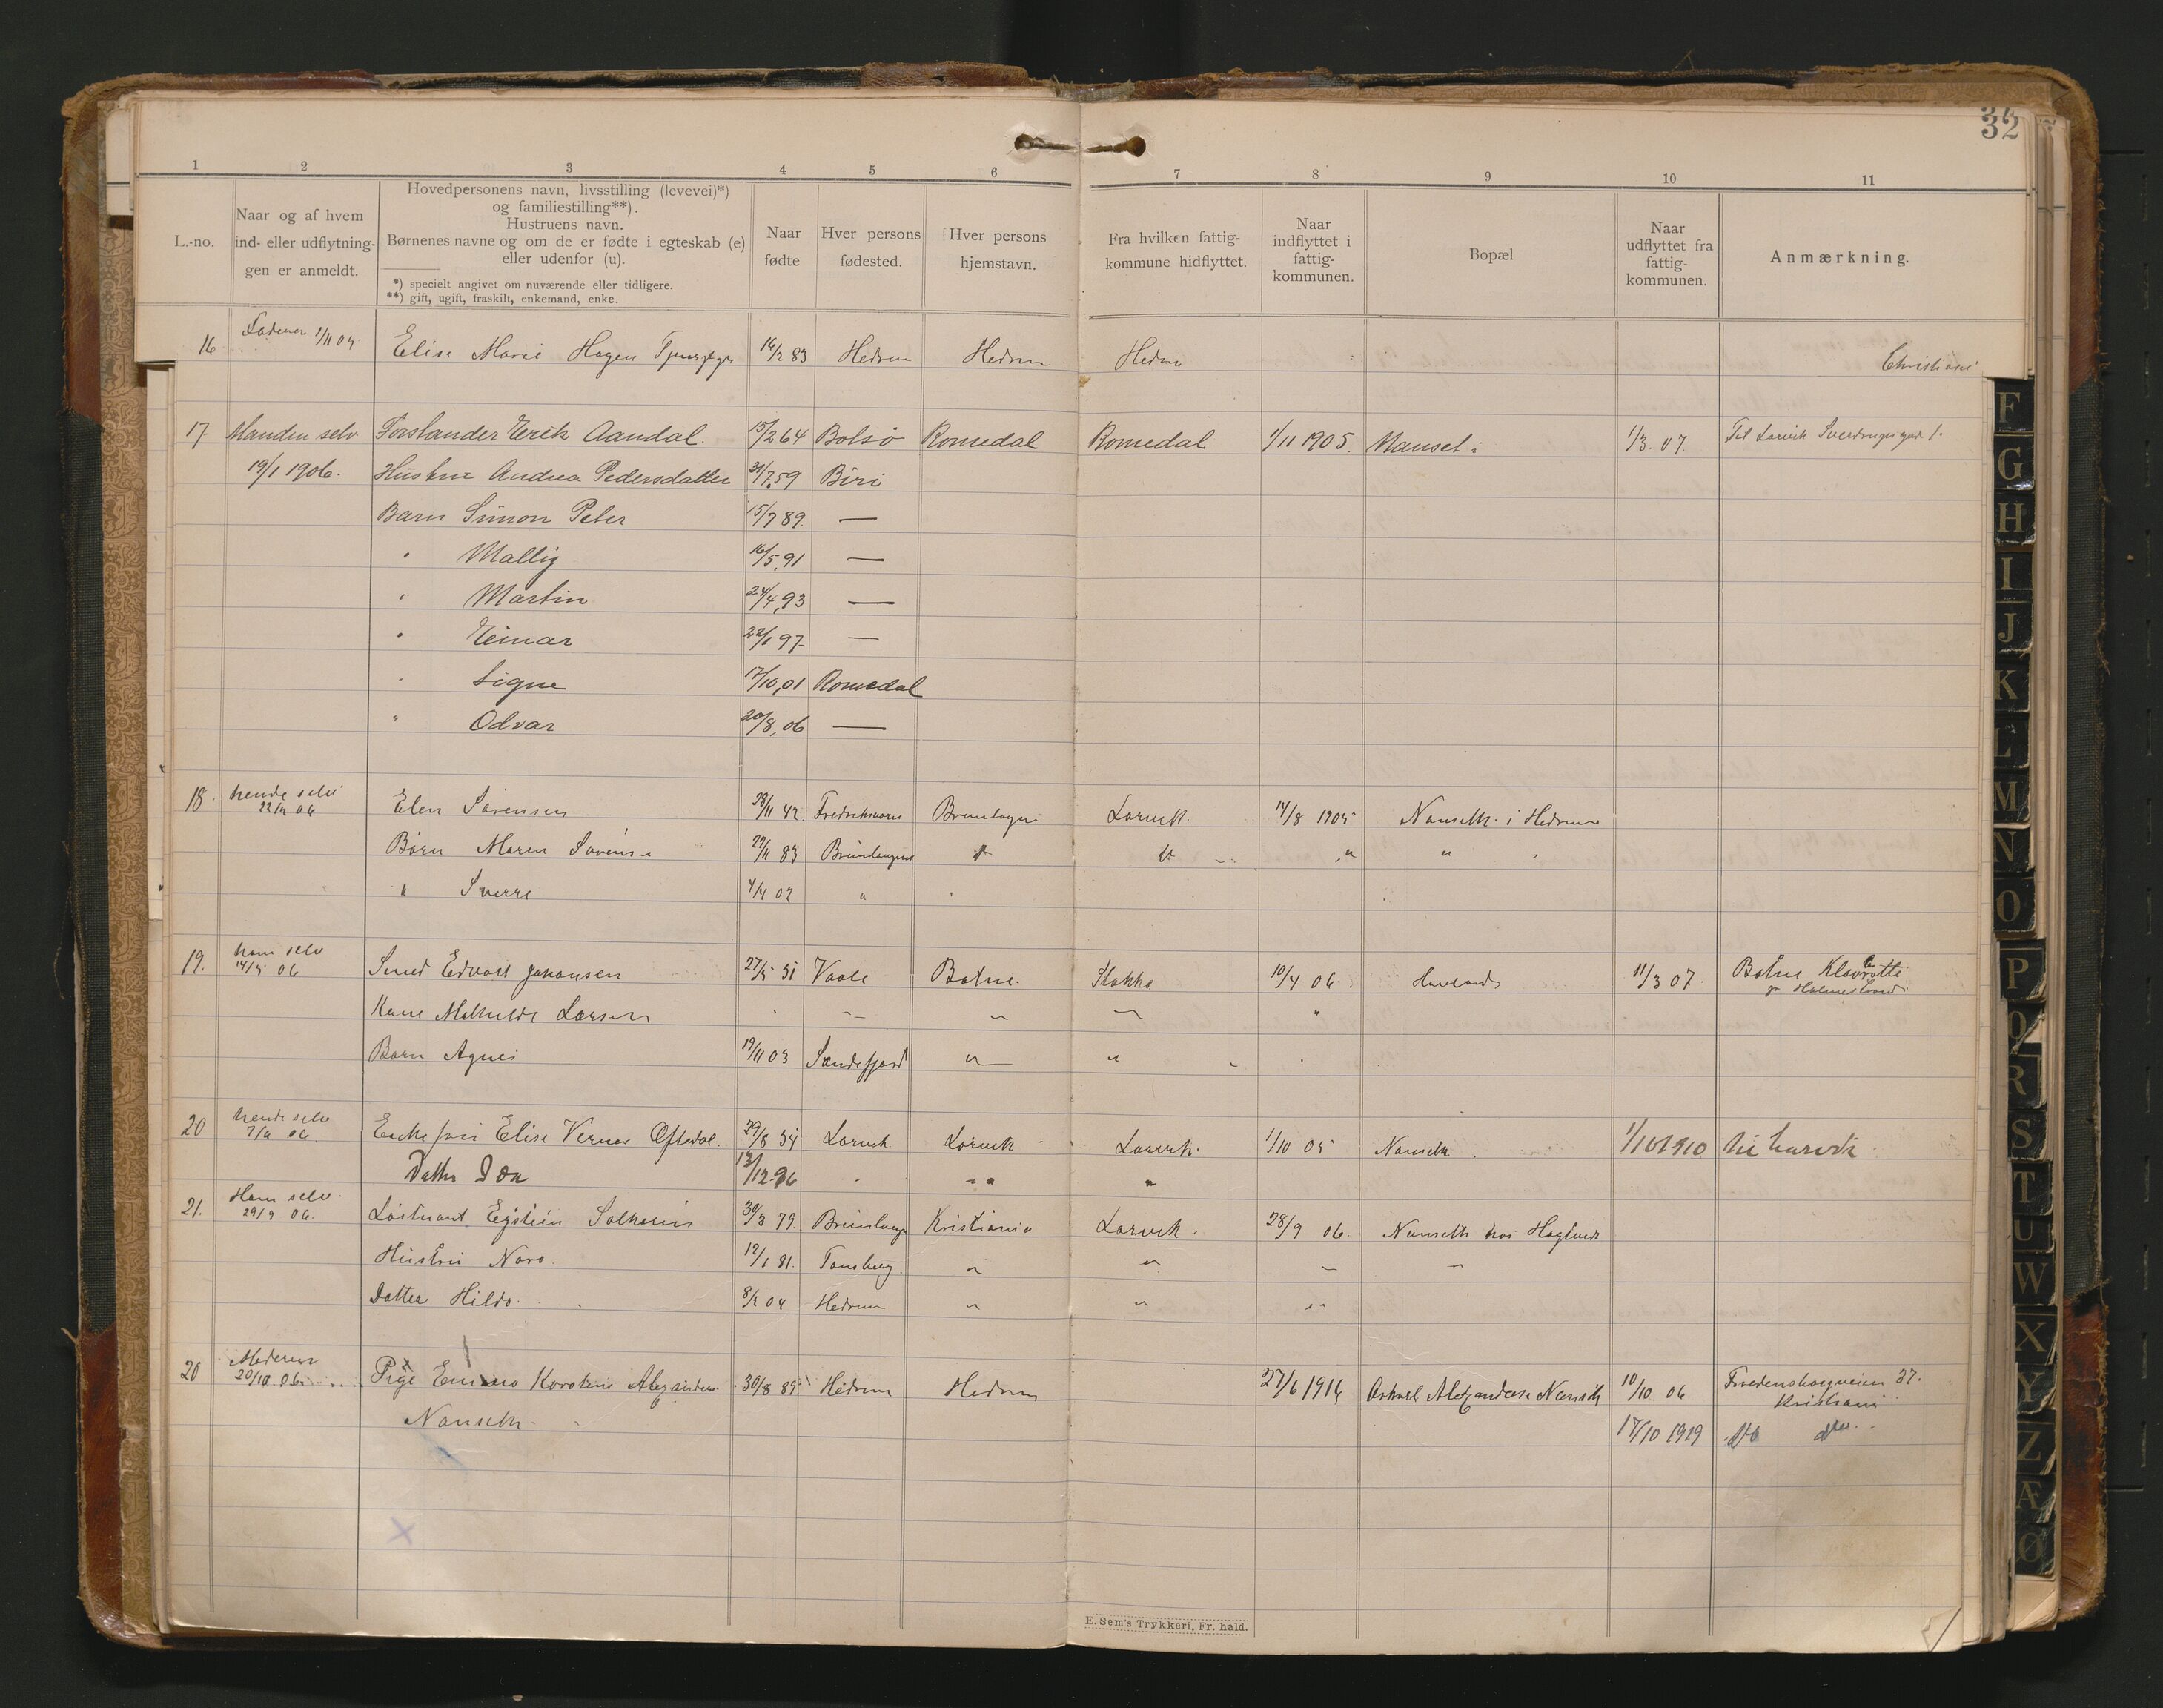 32
1 2 3 4 5 6 7 8 9 10 11
L.-no.
Naar og af hvem
ind- eller udflytnin-
gen er anmeldt.
Hovedpersonens navn, livsstilling (levevei)*)
og familiestilling**).
Hustruens navn.
Børnenes navne og om de er fødte i egteskab (e)
eller udenfor (u).
*) specielt angivet om nuværende eller tidligere.
**) gift, ugift, fraskilt, enkemand, enke.
Naar
fødte
Hver persons
fødested.
Hver persons
hjemstavn.
Fra hvilken fattig-
kommune hidflyttet.
Naar
indflyttet i
fattig-
kommunen.
Bopæl
Naar
udflyttet fra
fattig-
kommunen.
Anmærkning.
16 1/11 05. Elise Marie Hagen 14/2 83 Hedrum Hedrum Hedrum
17 Manden selv Erik Aandal. 15/2 64 Bolsø Romedal Romedal 1/11 1905. Nanset 1/3. 07. Til Larvik
19/1 1906. Hustru Andrea Pedersdatter 31/7.59 Biri
Barn Simon Peter 15/7 89. —
" Mallig 16/5,91 —
" Martin 24/4,93 —
" Einar 22/1 97 —
" Signe 17/10,01 Romedal
" Odvar 20/8,06 —
18. hende selv Elen Sørensen 28/11 42 Fredriksværn Brunlanes Larvik. 14/8 1905 Nanseth i Hedrum
Børn Maren Sørensen 29/11 83 Brunlanes " " "
" Sverre 4/4 02 "
19. ham selv Smed Edvart Johansen 27/5 51 Vaale Botne. Stokke 10/4 06. 11/3 07. Botne
14/5 06 pr Holmestrand
Kone Mathilde Larsen " "
Barn Agnes 19/11 03 Sandefjord " "
20 hende selv Enkefru Elise Verner Oftedal. 29/8 34 Larvik Larvik Larvik. 1/10 05 Nanseth 1/10 1910 til Larvik
Datter Ida 12/12 96 " "
21. Ham selv Løitnant Eystein Solheim 30/3 79. Brunlanes Kristiania Larvik. 28/9 06. Nanseth hos Haglund
29/9 06.
Hustru Nora. 12/1 81. Tønsberg. " "
Datter Hilda. 8/2 04 Hedrum " "
20 Moderen Pige Emma Karoline Alexandersen 30/8 89 Hedrum Hedrum 27/6 1914 Alexandersen Nanseth 10/10. 06 Fredensborgveien 37.
20/10. 06. Kristiania
Nanseth. 17/10 1919
E. Sem's Trykkeri, Fr.hald.
F
G
H
I
J
K
L
M
N
O
P
Q
R
S
T
U
W
X
Y
Z
Æ
Ø